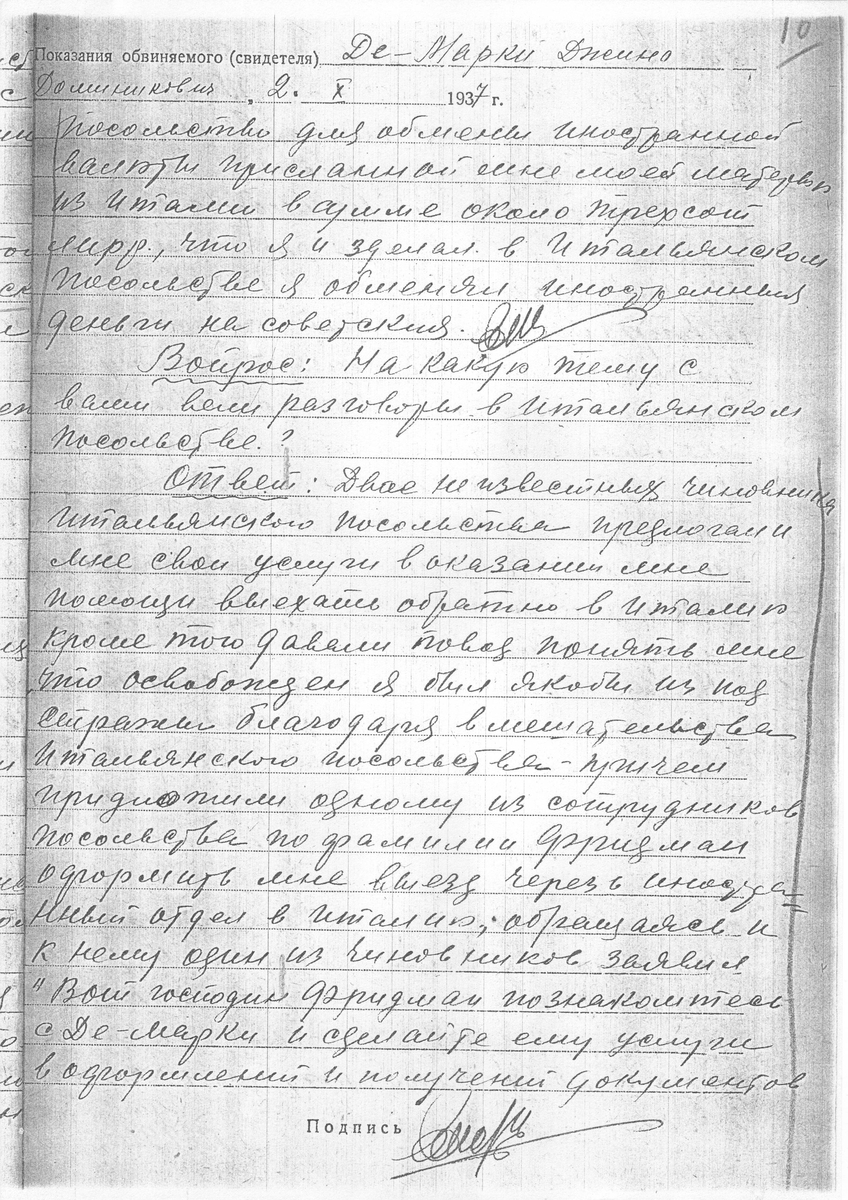 10
Показания обвиняемого (свидетеля) Де-Марки Джино
Доминикович, 2. X 1937 г.
посольство для обмены иностранной
валюты присланной мне моей матерью
из Италии в сумме около трехсот
лирр., что я и зделал. в Итальянском
посольстве я обменял иностранныя
деньги на советския.
Вопрос: На какую тему с
вами вели разговоры в Итальянском
посольстве.?
Ответ: Двое неизвестных чиновника
Итальянского посольства предлогали
мне свои услуги в оказании мне
помощи выехать обратно в Италию
кроме того давали повод понять мне
что освобожден я был якобы из под
стражи благодаря вмешательства
Итальянского посольства - причем
придложили одному из сотрудников
посольства по фамилии Фридман
оформить мне выезд черезь иностра=
нный отдел в Италию, обращаясь и
к нему один из чиновников заявил
"Вот господин Фридман познакомтесь
с Де-Марки и сделайте ему услуги
в оформлений и получений документов
Подпись